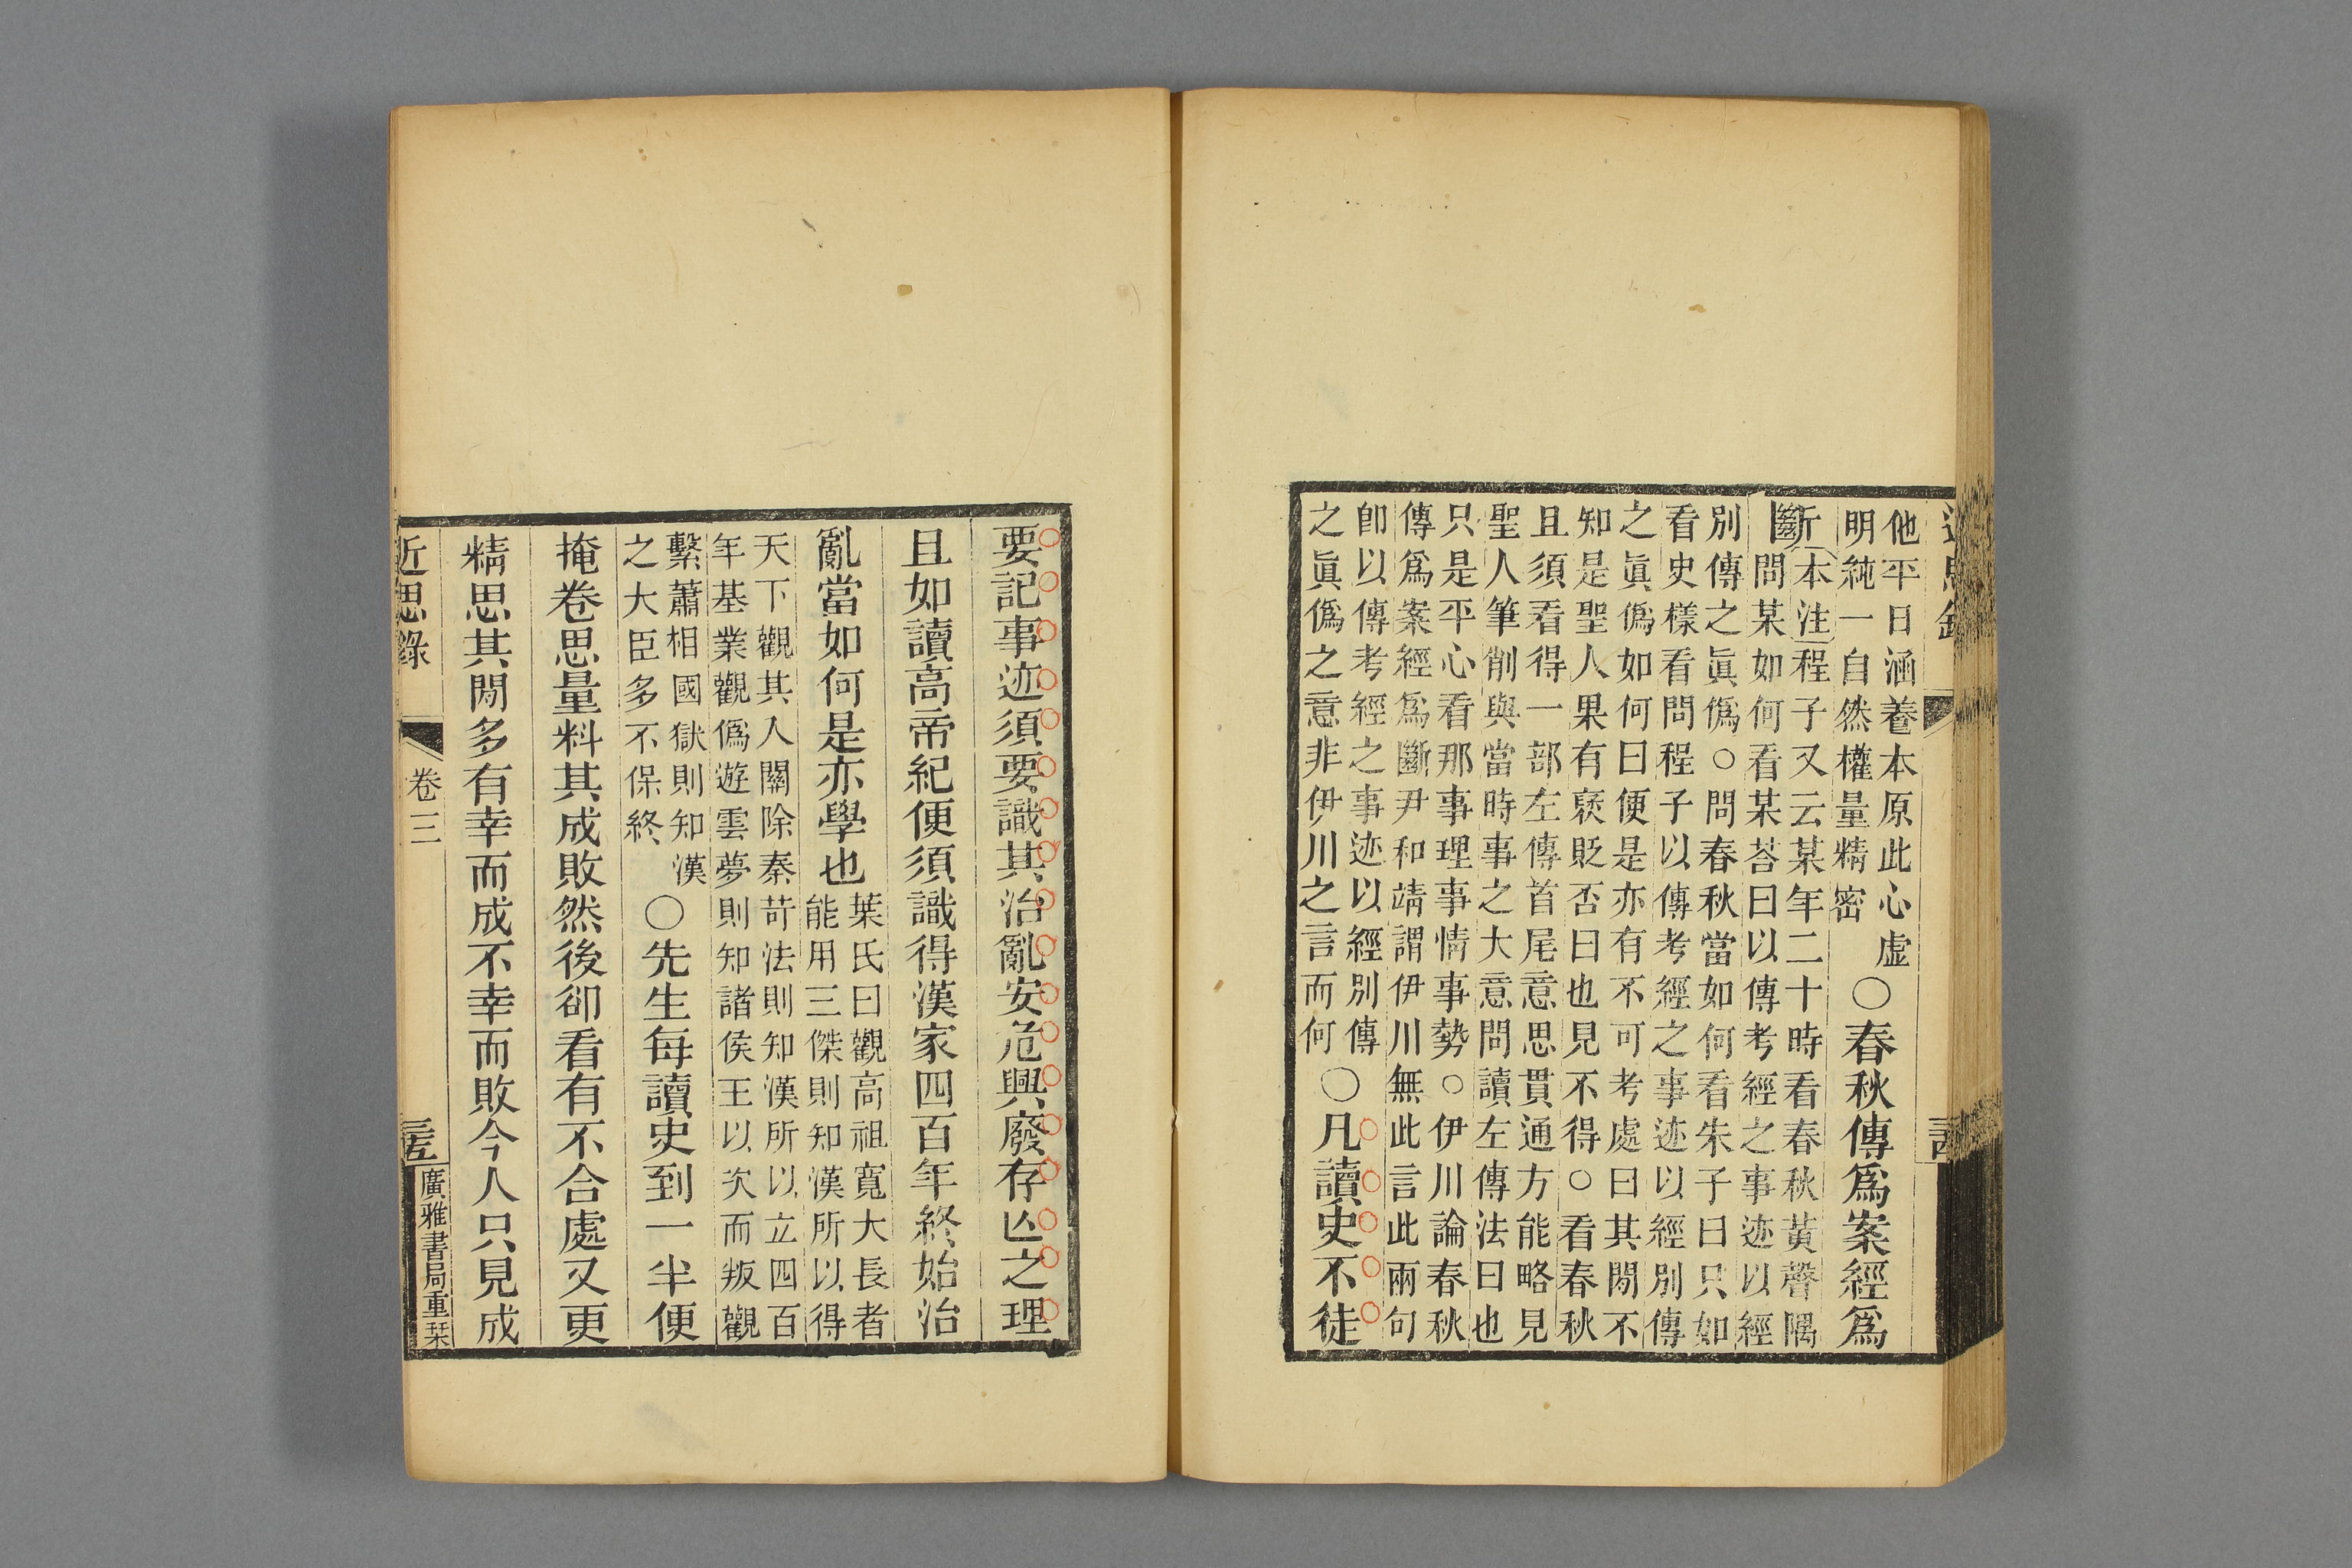 他平日涵養本原此心虛
明純一自然權量精密
○春秋傳爲案經爲
斷
本注程子又云某年二十時看春秋黃聱隅
問某如何看某荅曰以傳考經之事迹以經
別傳之眞僞○問春秋當如何看朱子曰只如
看史樣看問程子以傳考經之事迹以經別傳
之眞僞如何曰便是亦有不可考處曰其閒不
知是聖人果有裦貶否曰也見不得○看春秋
且須看得一部左傳首尾意思貫通方能略見
聖人筆削與當時事之大意問讀左傳法曰也
只是平心看那事理事情事勢○伊川論春秋
傳爲案經爲斷尹和靖謂伊川無此言此兩句
卽以傳考經之事迹以經別傳
之眞僞之意非伊川之言而何
○凡讀史不徒
要記事迹須要識其治亂安危興廢存亾之理
且如讀高帝紀便須識得漢家四百年終始治
亂當如何是亦學也
葉氏曰觀高祖寬大長者
能用三傑則知漢所以得
天下觀其入關除秦苛法則知漢所以立四百
年基業觀僞遊雲夢則知諸侯王以次而叛觀
繫蕭相國獄則知漢
之大臣多不保終
○先生每讀史到一半便
掩卷思量料其成敗然後卻看有不合處又更
精思其閒多有幸而成不幸而敗今人只見成
近思錄
卷三
廣雅書局重栞